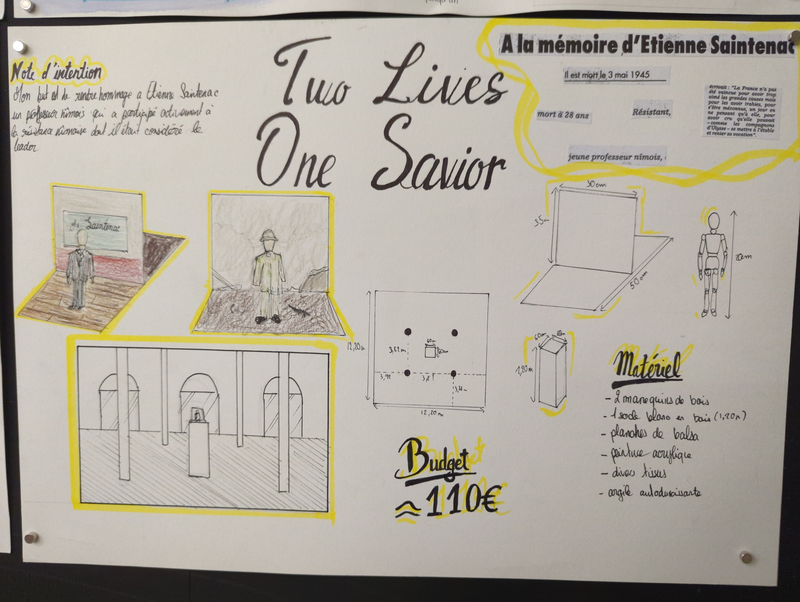 Note d'intention
Mon but est de rendre hommage a Etienne Saintenac
un professeur nimois qui a participé activement à
la résistance nimoise dont il était considéré le
leader.
Two Lives
One Savior
A la mémoire d'Etienne Saintenac
Il est mort le 3 mai 1945
mort à 28 ans
Résistant,
jeune professeur nimois,
écrous : "La France n'a pas
été vaincue pour avoir trop
aimé les grandes causes mais
pour les avoir trahies, pour
d'être méconnus, un jour on
ne pensent qu'à elle, pour
avoir cru qu'elle pouvait
- comme les compagnons
d'Ulysse - se mettre à l'étable
et rester sa vocation".
Mr Saintenac
30cm
35
50 cm
20cm
12,20m
60cm
3,62m
12,20m
1,20m
Budget
≈ 110€
Matériel
- 2 manequins de bois
- 1 socle blanc en bois (1,20m)
- planches de balsa
- peinture acrylique
- divers tissus
- argile autodurcissante